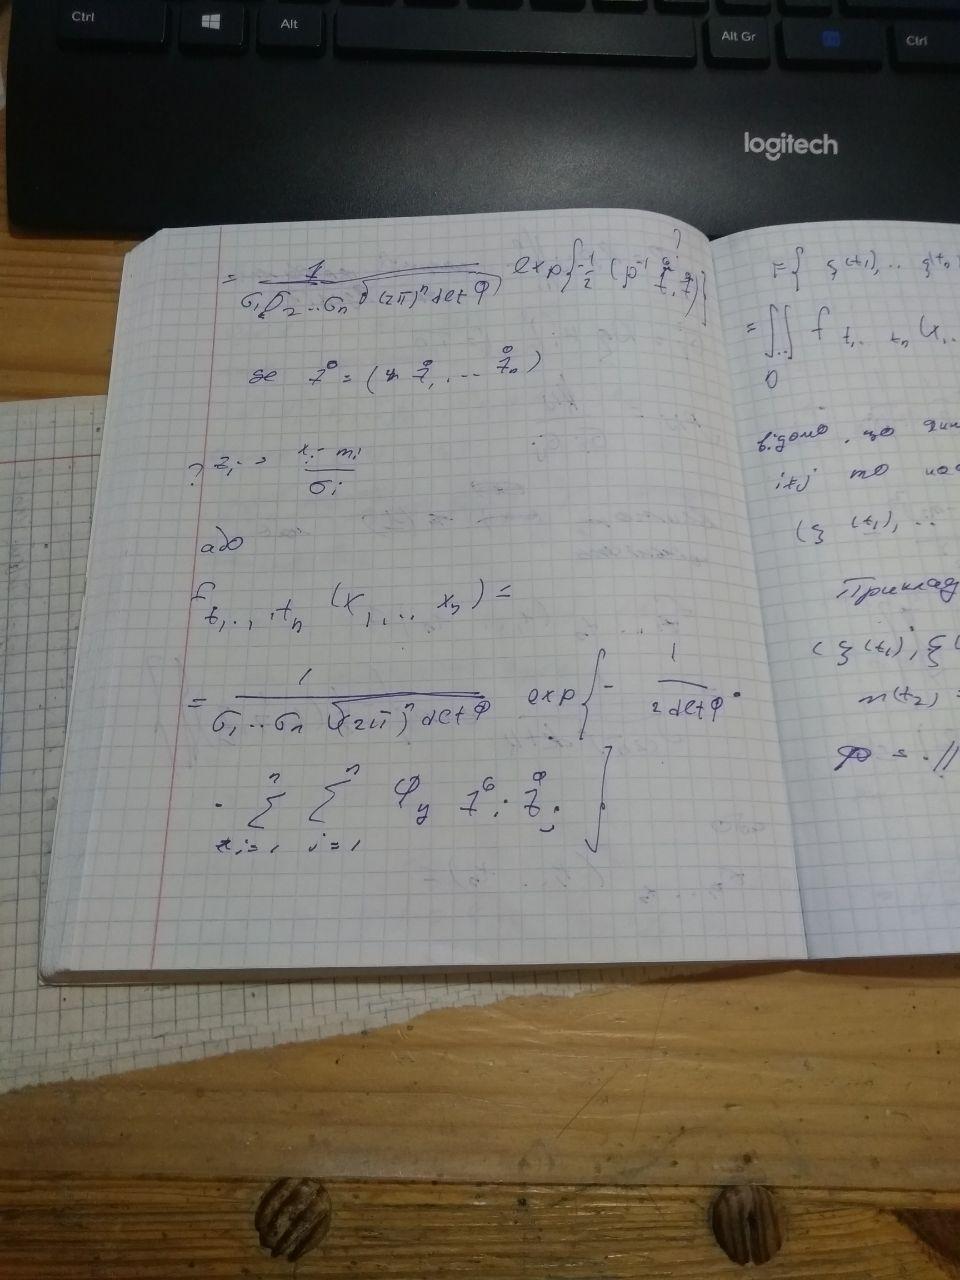 Ctrl
Alt
Alt Gr
Ctrl
logitech
?
= 1 / σ₁σ₂...σₙ √(2π)ⁿ det φ exp{-1/2 (ρ⁻¹ z̊, z̊)}
де z⁰ = (z̊₁, ... z̊ₙ)
? zᵢ = xᵢ - mᵢ / σᵢ
або
f t₁, .., tₙ (x₁, ... xₙ) =
= 1 / σ₁...σₙ √(2π)ⁿ det φ exp{ - 1 / 2 det φ ·
· Σ Σ φ z⁰ᵢ z̊ⱼ }
n n
i=1 j=1
F{ ξ(t₁), .. ξ(tₙ)
= ∬.. f t₁.. tₙ (x₁..
D
відомо, що
i≠j то
(ξ (t₁), ..
Приклад
(ξ(t₁), ξ(
m(t₂) =
φ = ||